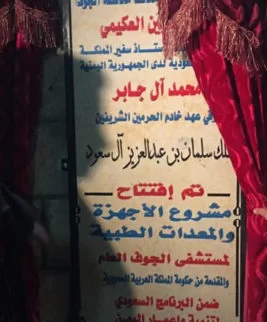 ين العكيمي
ستاذ سفير المملكة
عودية لدى الجمهورية اليمنية
محمد آل جابر
في عهد خادم الحرمين الشريفين
لك سلمان بن عبدالعزيز آل سعود
تم إفتتاح
مشروع الأجهزة
والمعدات الطبية
لمستشفى الجوف العام
والمقدمة من حكومة المملكة العربية السعودية
ضمن البرنامج السعودي
لتنمية وإعمار اليمن